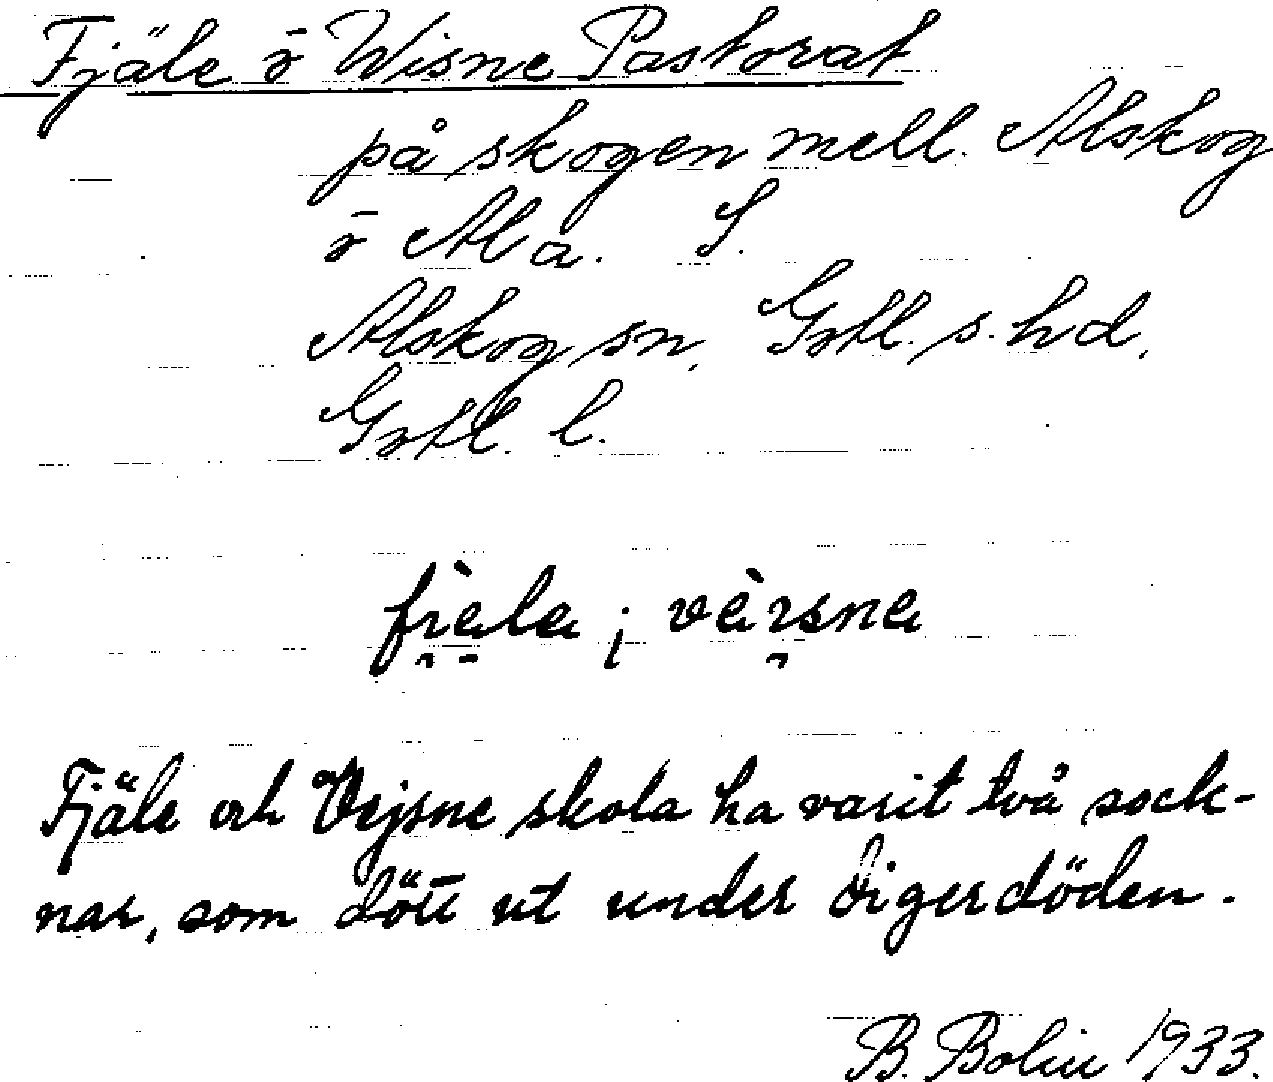 Fjäle o Wisne Pastorat
på skogen mell. Alskog
o Ala. S.
Alskog sn, Gotl. s. hd,
Gotl. l.
fi̯ẹ̀la ; vèi̯sna
Fjäle och Vejsne skola ha varit två sock-
nar, som dött ut under digerdöden.
B. Bolin 1933.